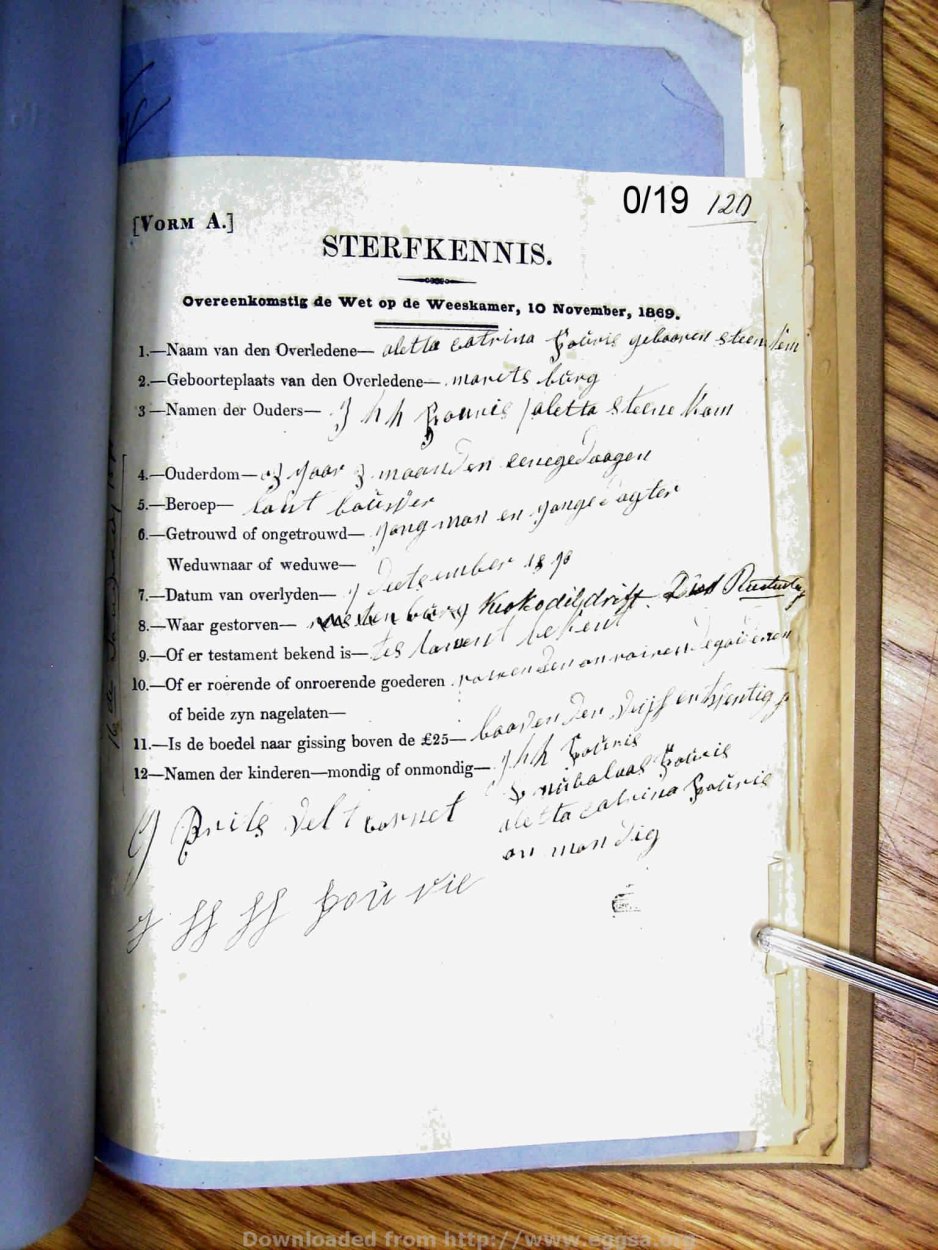 0/19 120
[VORM A.]
STERFKENNIS.
Overeenkomstig de Wet op de Weeskamer, 10 November, 1869.
1.—Naam van den Overledene— aletta catrina fourie gebooren steen kem
2.—Geboorteplaats van den Overledene— marets burg
3—Namen der Ouders— J h h fourie / aletta steene kam
4.—Ouderdom— jaar 3 maanden eenege daagen
5.—Beroep— lant bouwer
6.—Getrouwd of ongetrouwd— jong man en jonge dogter
Weduwnaar of weduwe—
7.—Datum van overlyden— 1890
8.—Waar gestorven— Krokodildrift Dist Rustenburg
9.—Of er testament bekend is— tes tament bekent
10.—Of er roerende of onroerende goederen
of beide zyn nagelaten—
11.—Is de boedel naar gissing boven de £25— booven den vrijf en twentig p
12—Namen der kinderen—mondig of onmondig— J h h fourie
nikolaas fourie
aletta catrina fourie
on mon dig
velt cornet
fou rie
Downloaded from http://www.eggsa.org